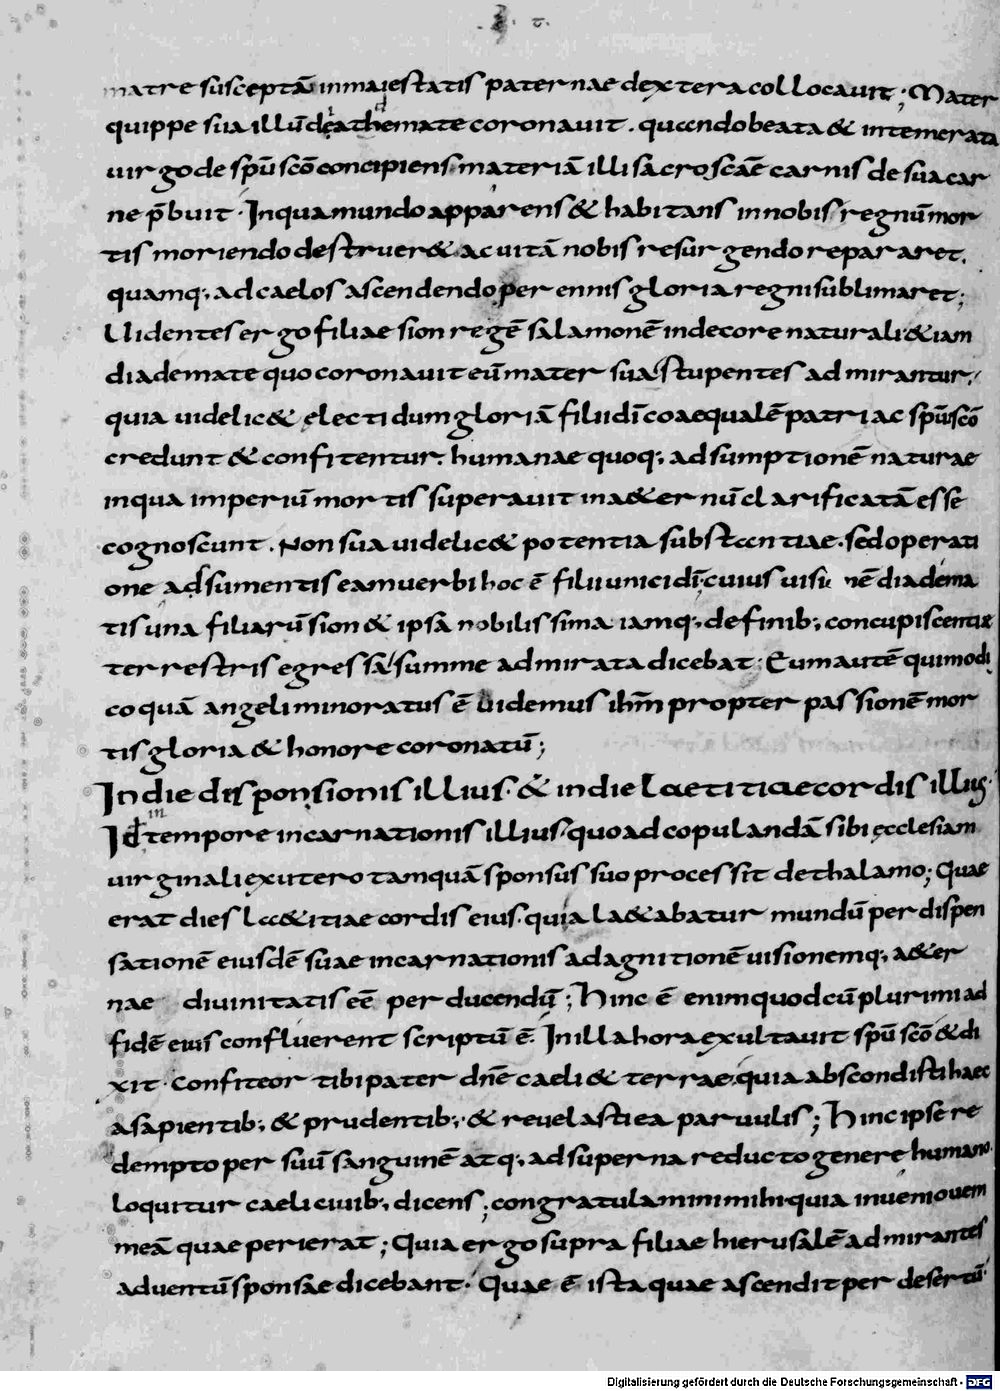 matre susceptā in maiestatis paternae dextera collocavit; Mater
quippe sua illū diathemate coronauit. quando beata & intemerata
uirgo de spū scō concipiens materiā illi sacroscāe carnis de sua car
ne p̄buit. In qua mundo apparens & habitans in nobis regnū mor
tis moriendo destruer& ac uitā nobis resurgendo repararet.
quamq; ad caelos ascendendo perennis gloria regni sublimaret;
Uidentes ergo filiae sion regē salamonē in decore naturali & iam
diademate quo coronauit eū mater sua stupentes admirantur,
quia uidelic& electi dum gloriā filii dī coaequalē patri ac spūi scō
credunt & confitentur. humanae quoq; adsumptionē naturae
in qua imperiū mortis superauit in a&ernū clarificatā esse
cognoscunt. Non sua uidelic& potentia substantiae. sed operati
one adsumentis eam uerbi hoc ē filii unici dī. cuius uisionē diadema
tis una filiarū sion & ipsa nobilissima iamq; de finib; concupiscentiae
terrestris egressa summe admirata dicebat. Eum autē qui modi
co quā angeli minoratus ē uidemus ihm̄ propter passionē mor
tis gloria & honore coronatū;
In die disponsionis illius. & in die laetitiae cordis illius.
Id ÷ in tempore incarnationis illius. quo ad copulandā sibi ecclesiam
uirginali ex utero tamquā sponsus suo processit de thalamo; Quae
erat dies la&itiae cordis eius. quia la&abatur mundū per dispen
sationē eiusdē suae incarnationis ad agnitionē uisionemq; a&er
nae diuinitatis eē perducendū; Hinc ē enim quod cū plurimi ad
fidē eius confluerent scriptū ē. In illa hora exultauit spū scō & di
xit. Confiteor tibi pater dn̄e caeli & terrae. quia abscondisti haec
a sapientib; & prudentib; & reuelasti ea paruulis; Hinc ipse re
dempto per suū sanguinē atq; ad superna reducto genere humano
loquitur caeli ciuib; dicens; congratulamini mihi quia inueni ouem
meā quae perierat; Quia ergo supra filiae hierusalē admirantes
aduentū sponsae dicebant. Quae ē ista quae ascendit per desertū.
Digitalisierung gefördert durch die Deutsche Forschungsgemeinschaft - DFG